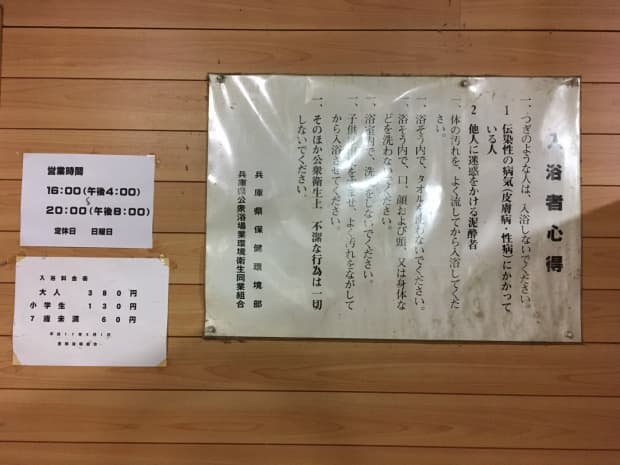 入浴者心得
一、つぎのような人は、入浴しないでください。
1 伝染性の病気(皮膚病・性病)にかかって
いる人
2 他人に迷惑をかける泥酔者
一、体の汚れを、よく流してから入浴してくだ
さい。
一、浴そう内で、タオルを
わないでください。
一、浴そう内で、口、顔および頭、又は身体な
どを洗わないでください。
一、浴室内で、洗
をしないでください。
一、子供
せ、よく汚れをながして
から入浴させてください。
一、そのほか公衆衛生上、不潔な行為は一切
しないでください。
兵庫県保健環境部
兵庫県公衆浴場業環境衛生同業組合
営業時間
16:00(午後4:00)
~
20:00(午後8:00)
定休日 日曜日
入浴料金表
大人 380円
小学生 130円
7歳未満 60円